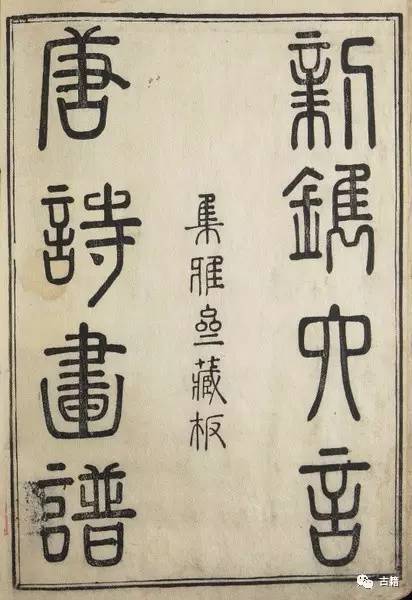 新鐫六言
集雅齋藏板
唐詩畫譜
古籍